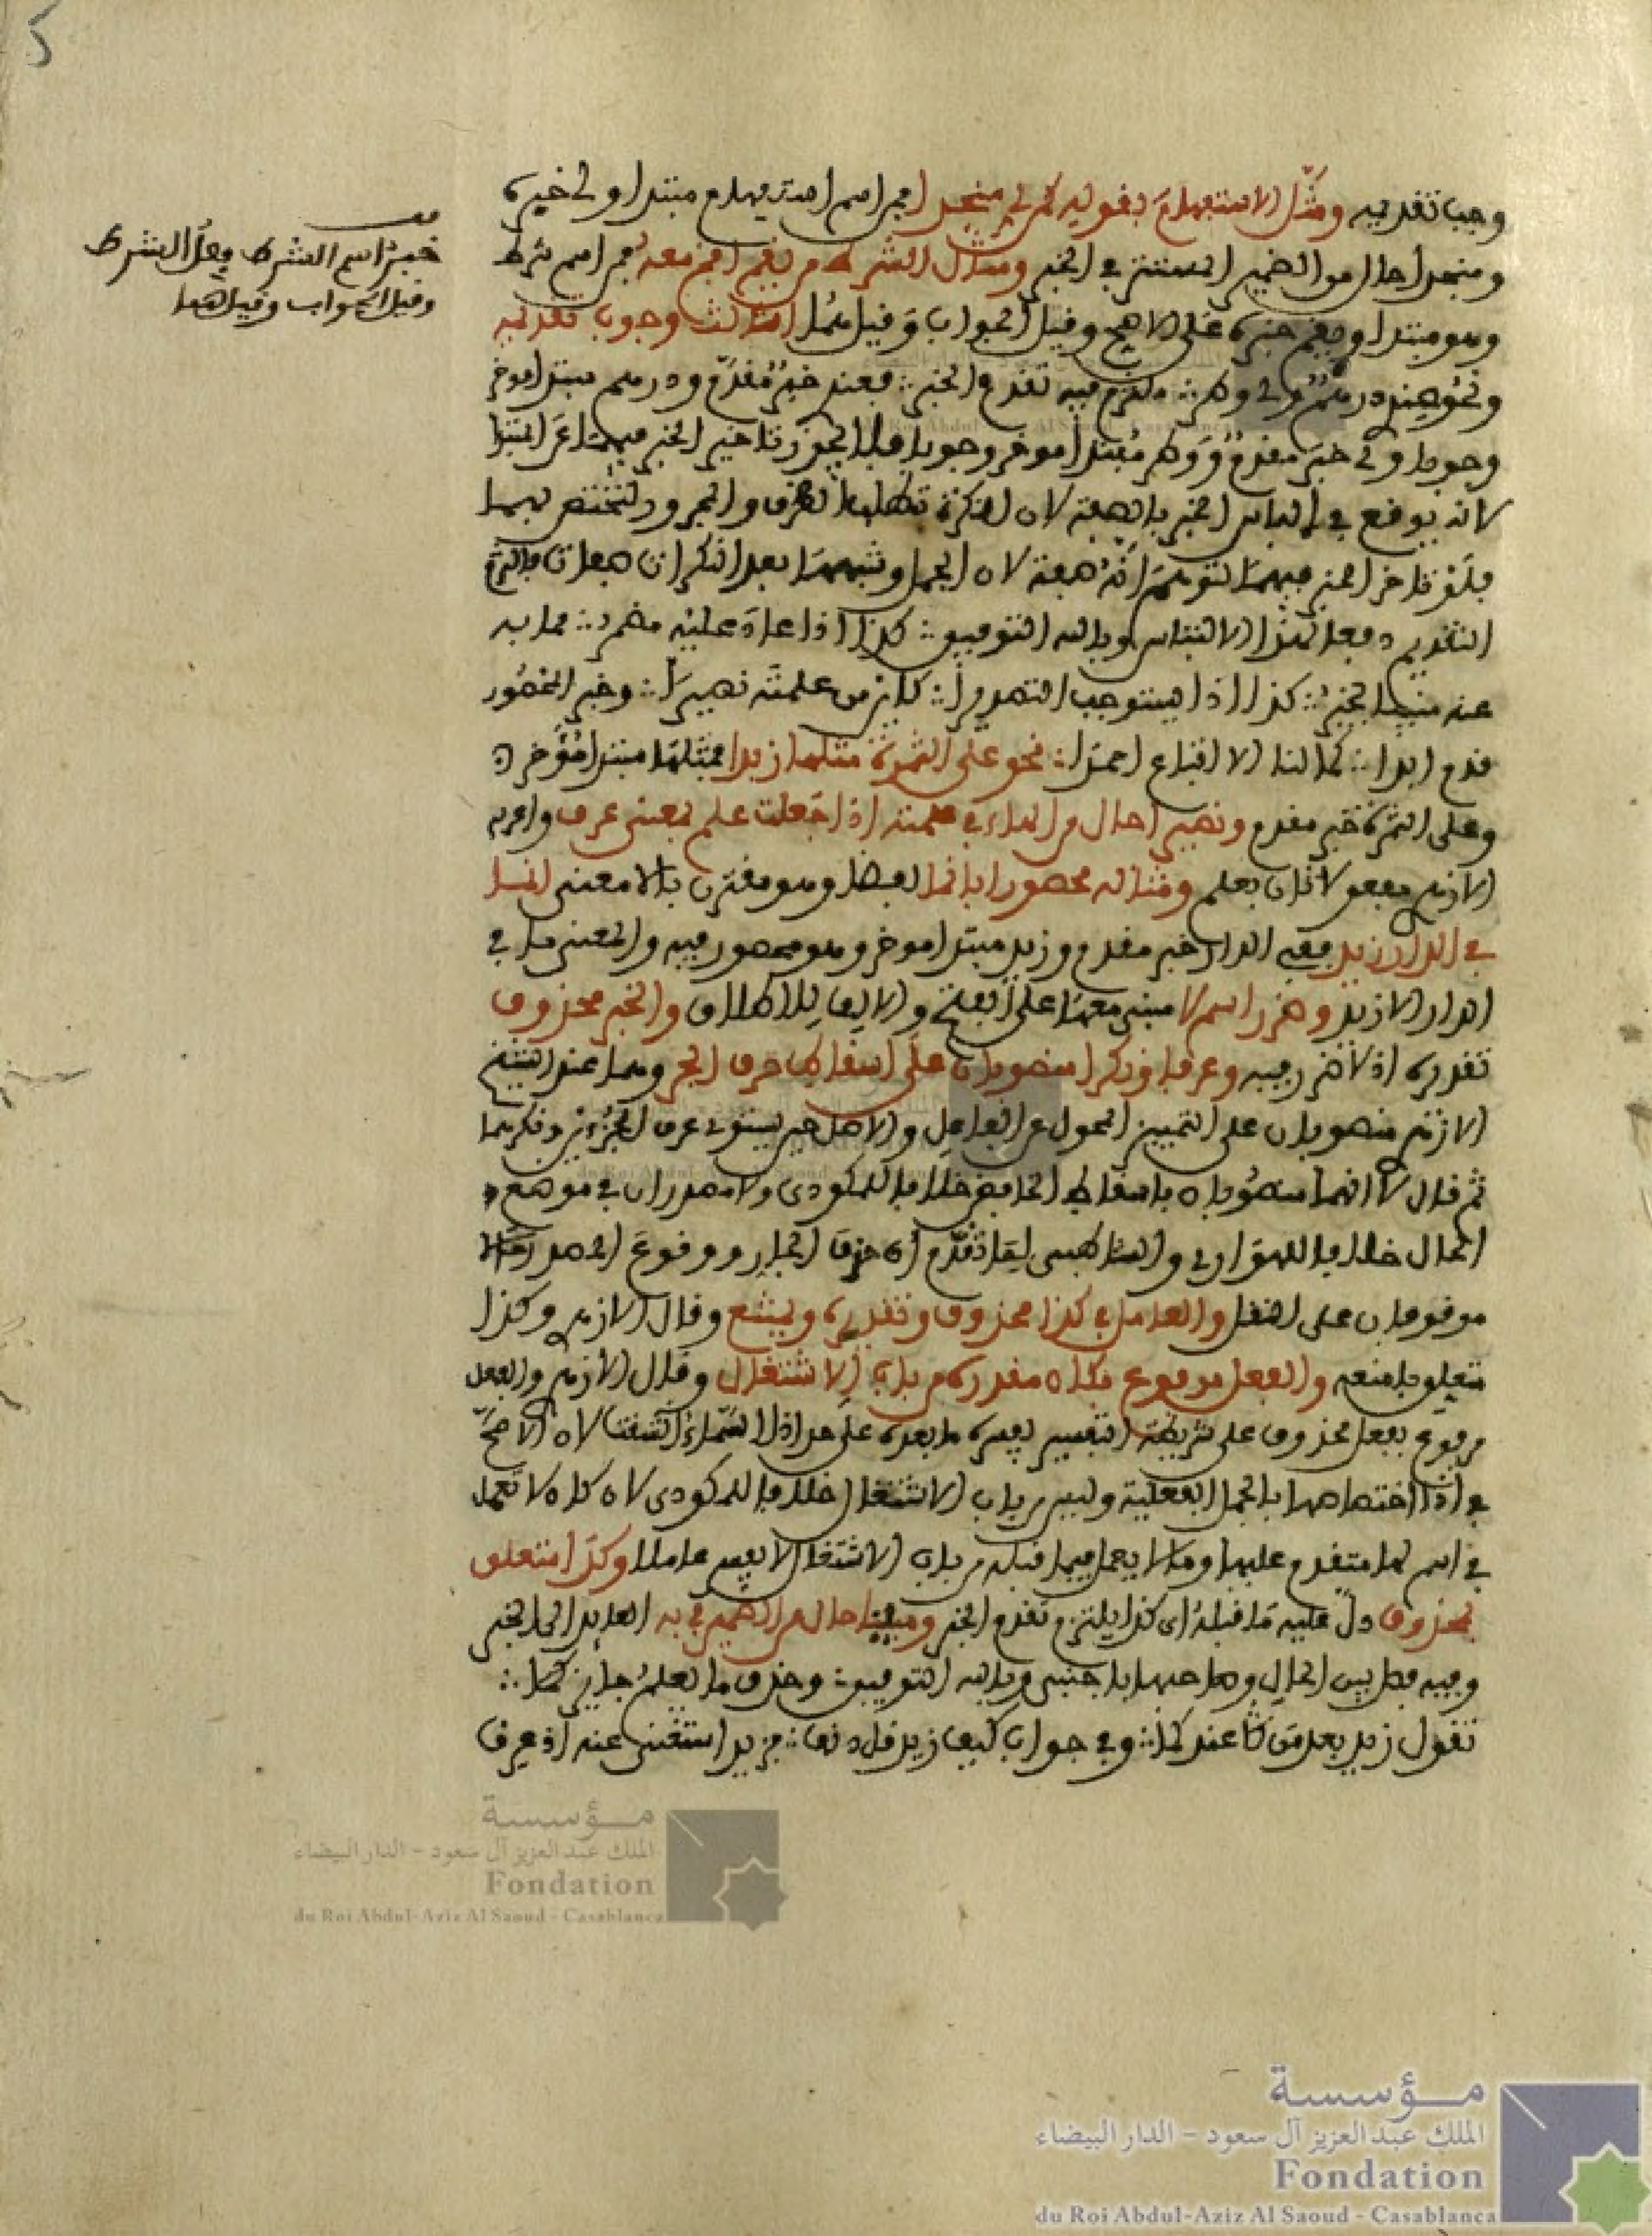 وجب تقديمه ومثل الاستفهام بقوليه كمن لي منجدا فمن اسم استفهام مبتدا ولي خبره
ومنجدا حال من الضمير المستتر في الخبر ومثال الشرط من يقم اقم معه فمن اسم شرط
وهو مبتدا ويقم خبره على الاصح وقيل الجواب وقيل هما الثالث وجوب تقديمه
ونحو عندي درهم ولي وطر ملتزم فيه تقدم الخبر فعندي خبر مقدم ودرهم مبتدا موخر
وجوبا ولي خبر مقدم ووطر مبتدا موخر وجوبا فلا يجوز تاخير الخبر فيهما عن المبتدا
لانه يوقع في الباس الخبر بالصفة لان النكرة تطلب الظرف والمجرور لتختص بهما
فلو تاخر الخبر فيهما لتوهم انه صفة لان الجمل وشبهها بعد النكرات صفات فالتزم
التقديم دفعا لهذا الالتباس وبالله التوفيق كذا اذا عاد عليه مضمر مما به
عنه مبينا يخبر كذا اذا يستوجب التصديرا كاين من علمته نصيرا وخبر المحصور
قدم ابدا كما لنا الا اتباع احمدا نحو على التمرة مثلها زبدا فمثلها مبتدا مؤخر
وعلى التمرة خبر مقدم ونصيرا حال من الهاء في علمته اذا جعلت علم بمعنى عرف واعربه
الازهري مفعولا ثان بعلم ومثاله محصورا بانما لفظا وهو مقترن بالا معنى انما
في الدار زيد ففي الدار خبر مقدم وزيد مبتدا موخر وهو محصور فيه والمعنى ما في
الدار الا زيد وضرر اسم لا مبني معها على الفتح والالف للاطلاق والخبر محذوف
تقديره اذ لا ضرر فيه وعرفا ونكرا منصوبان على اسقاط حرف الجر وهما عند الشيخ
الازهري منصوبان على التمييز المحول عن الفاعل والاصل حين يستوي عرف الجزءين ونكرهما
ثم قال لا انهما منصوبان باسقاط الخافض خلافا للمكودي ولا مصدران في موضع
الحال خلافا للهواري والشاطبي لما تقدم ان حذف الجار ووقوع المصدر حالا
موقوفان على النقل والعامل في كذا محذوف وتقديره ويمتنع وقال الازهري وكذا
متعلق بامنعه والفعل مرفوع بكان مقدرة من باب الاشتغال وقال الازهري والفعل
مرفوع بفعل محذوف على شريطة التفسير يفسره ما بعده على حد اذا السماء انشقت لان الاصح
في اذا اختصاصها بالجمل الفعلية وليس من باب الاشتغال خلافا للمكودي لان كان لا تعمل
في اسم لها متقدم عليها وما لا يعمل فيما قبله من باب الاشتغال لا يفسر عاملا وكذا متعلق
بمحذوف دل عليه ما قبله اي كذا يلتزم تقدم الخبر ومبينا حال من الضمير في به العايد الى الخبر
وفيه فصل بين الحال وصاحبها باجنبي وبالله التوفيق وحذف ما يعلم جايز كما
تقول زيد بعد من عندكما وفي جواب كيف زيد قل دنف فزيد استغني عنه اذ عرف
خبر اسم الشرط فعل الشرط
وقيل الجواب وقيل هما
مؤسسة
الملك عبد العزيز آل سعود - الدار البيضاء
Fondation
du Roi Abdul-Aziz Al Saoud - Casablanca
مؤسسة
الملك عبد العزيز آل سعود - الدار البيضاء
Fondation
du Roi Abdul-Aziz Al Saoud - Casablanca